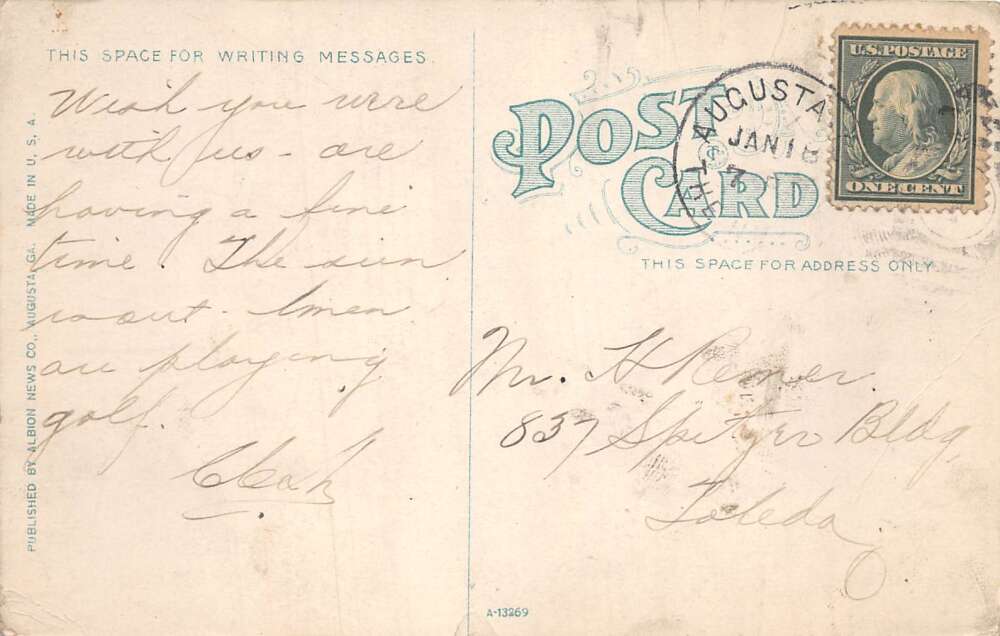 THIS SPACE FOR WRITING MESSAGES.
Wish you were
with us - are
having a fine
time. The sun
is out - & men
are playing
golf.
PUBLISHED BY ALBION NEWS CO., AUGUSTA, GA. MADE IN U. S. A.
POST CARD
AUGUSTA
JAN 18
7
U.S. POSTAGE
ONE CENT
THIS SPACE FOR ADDRESS ONLY
Mr. H Remer.
837 Spitzer Bldg,
Toledo
A-13269